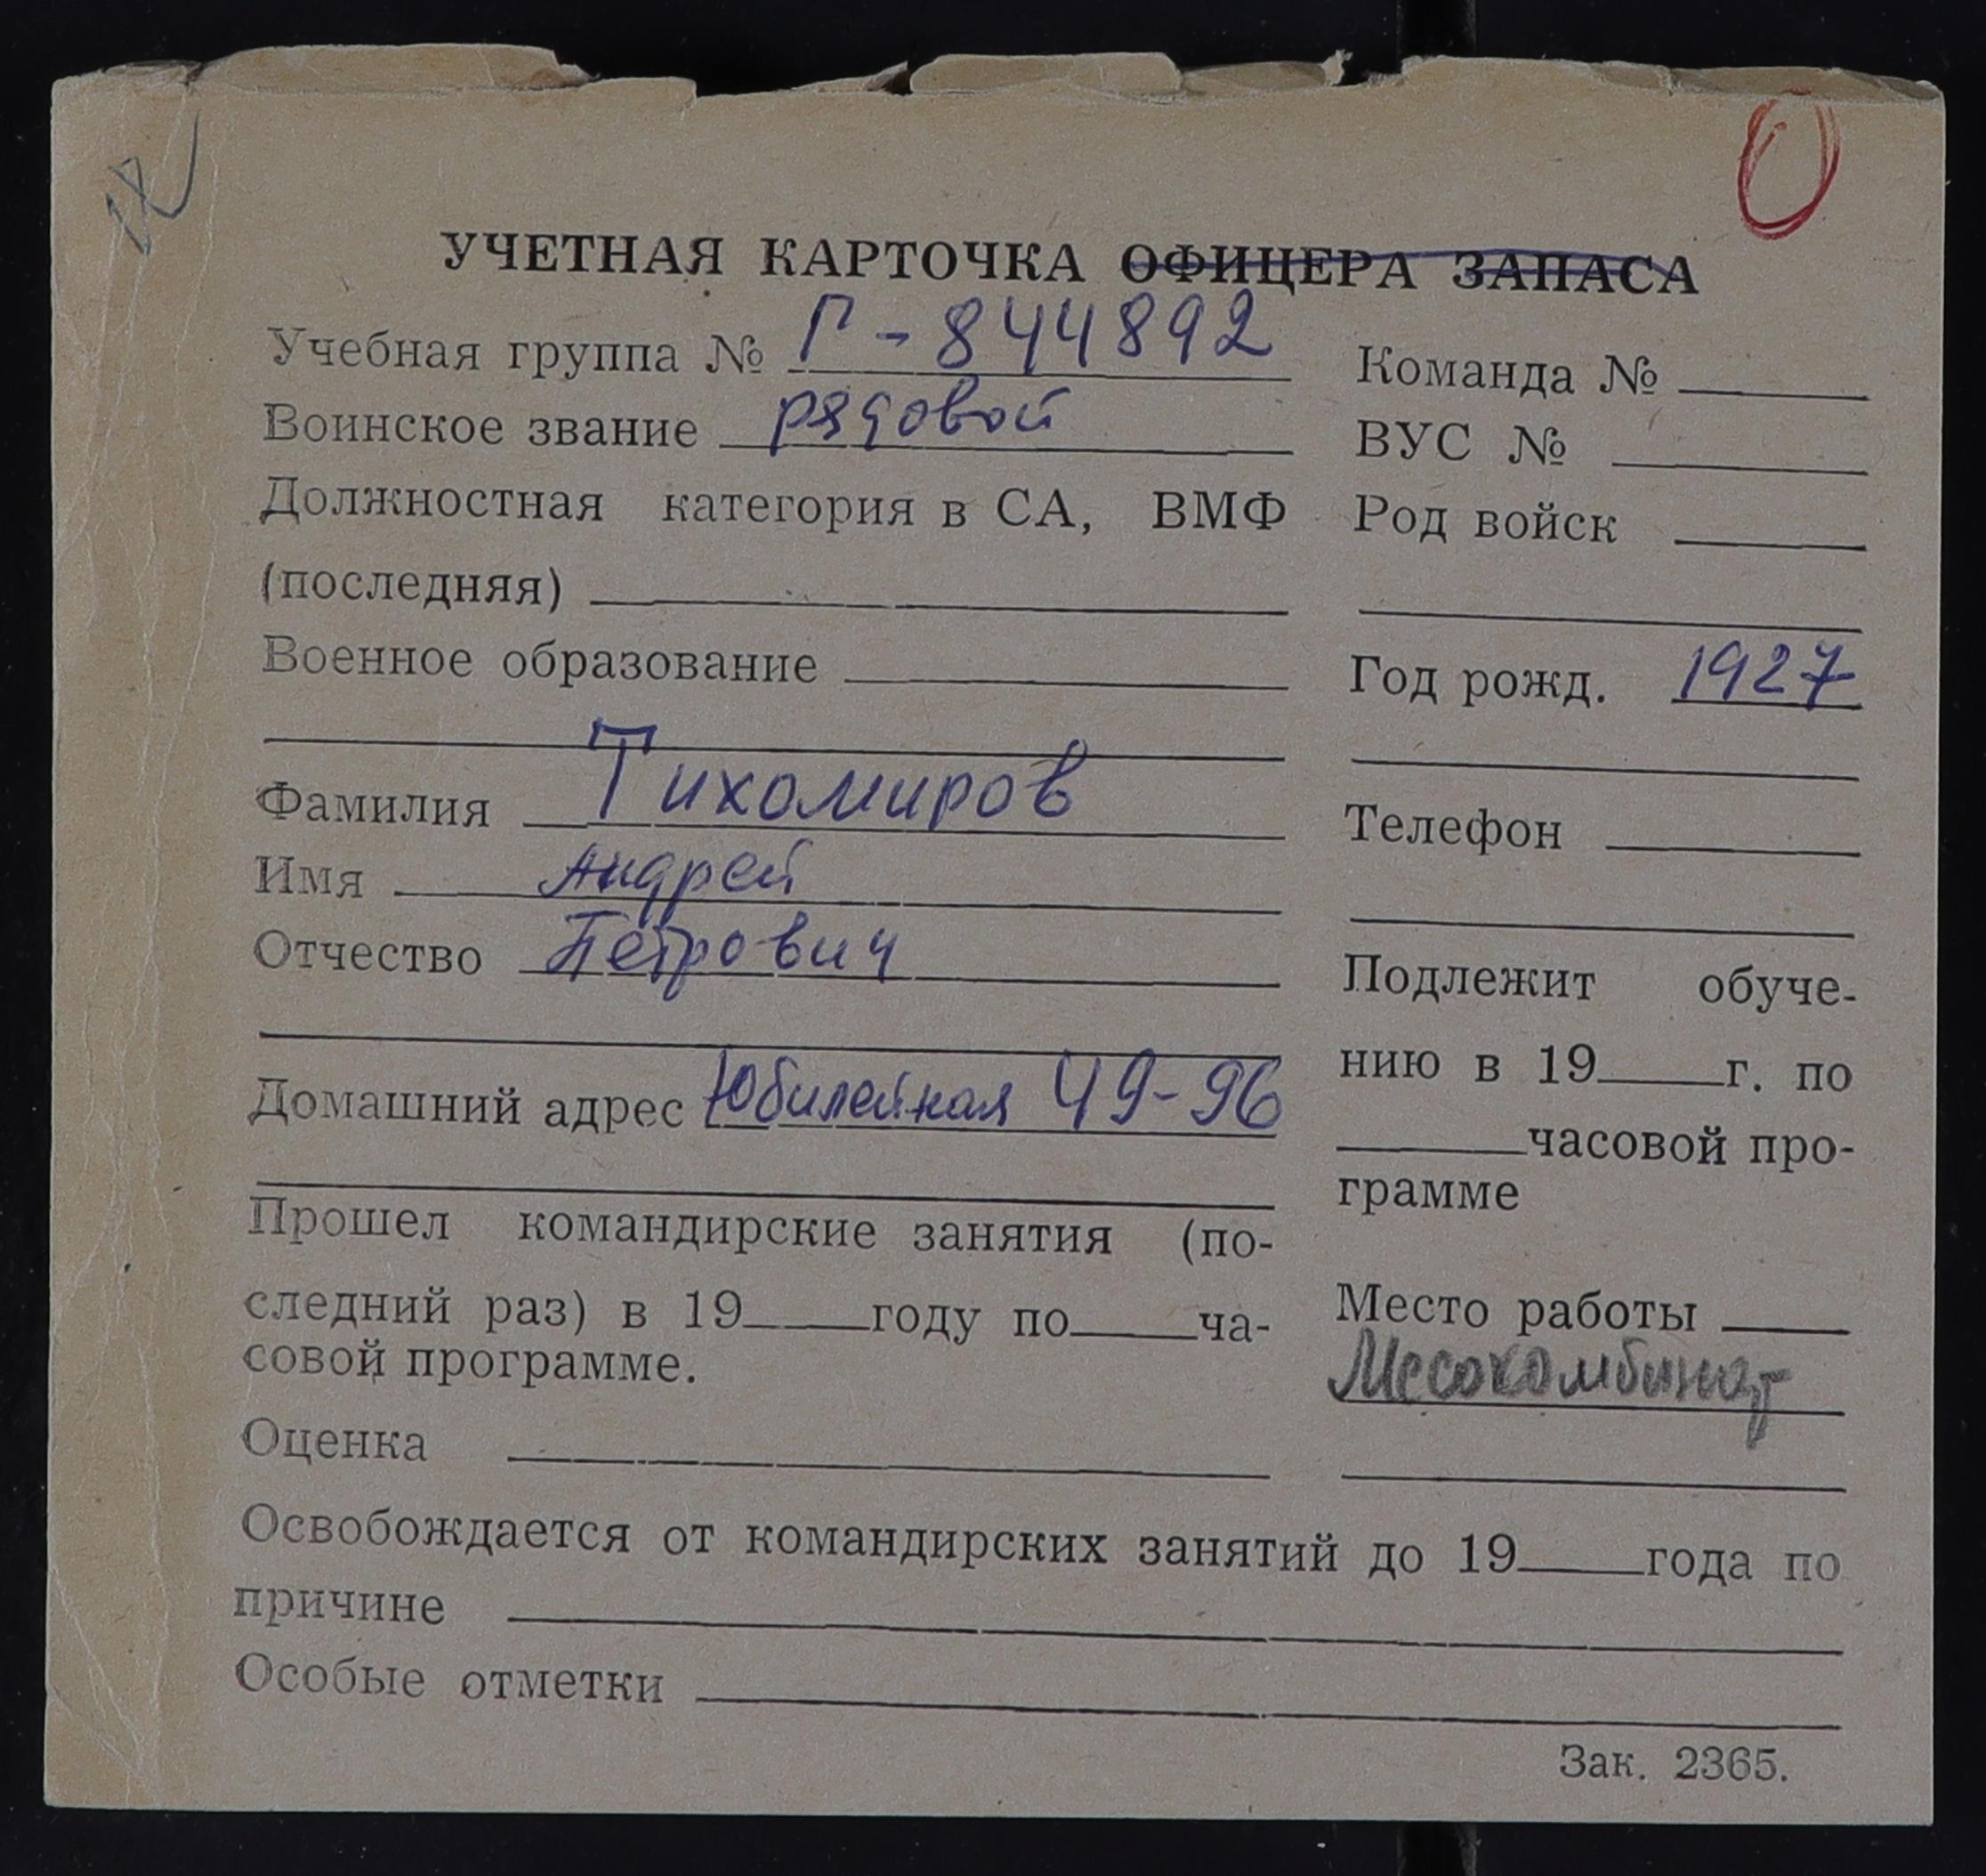 УЧЕТНАЯ КАРТОЧКА ОФИЦЕРА ЗАПАСА
Учебная группа № Г-844892
Воинское звание рядовой
Должностная категория в СА, ВМФ
(последняя)
Военное образование
Фамилия Тихомиров
Имя Андрей
Отчество Петрович
Домашний адрес Юбилейная 49-96
Прошел командирские занятия (по-
следний раз) в 19 году по ча-
совой программе.
Оценка
Команда №
ВУС №
Род войск
Год рожд. 1927
Телефон
Подлежит обуче-
нию в 19 г. по
часовой про-
грамме
Место работы
Месокомбинат
Освобождается от командирских занятий до 19 года по
причине
Особые отметки
Зак. 2365.